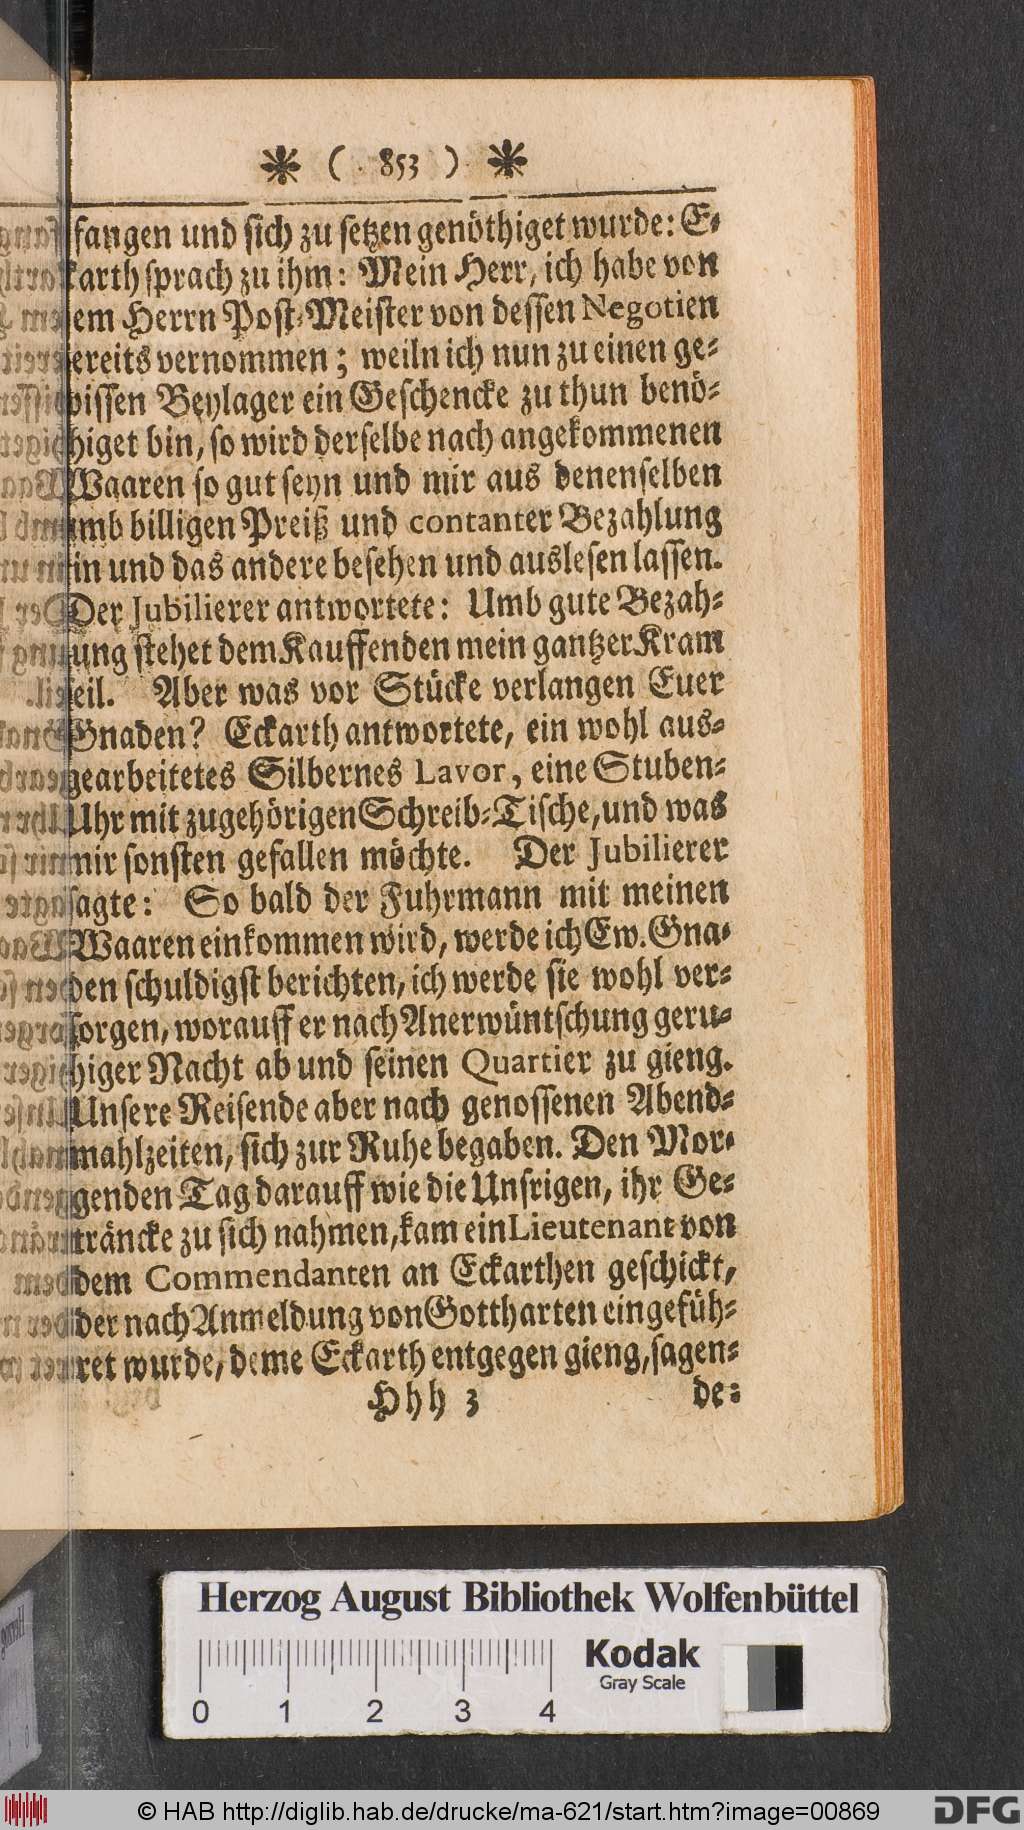 * ( 853 ) *
fangen und sich zu setzen genöthiget wurde: E-
karth sprach zu ihm: Mein Herr, ich habe von
em Herrn Post-Meister von dessen Negotien
ereits vernommen; weiln ich nun zu einen ge-
wissen Beylager ein Geschencke zu thun benö-
higet bin, so wird derselbe nach angekommenen
Waaren so gut seyn und mir aus denenselben
umb billigen Preiß und contanter Bezahlung
in und das andere besehen und auslesen lassen.
Der Jubilierer antwortete: Umb gute Bezah-
ung stehet dem Kauffenden mein gantzer Kram
eil. Aber was vor Stücke verlangen Euer
Gnaden? Eckarth antwortete, ein wohl aus-
gearbeitetes Silbernes Lavor, eine Stuben-
Uhr mit zugehörigen Schreib-Tische, und was
mir sonsten gefallen möchte. Der Jubilierer
sagte: So bald der Fuhrmann mit meinen
Waaren einkommen wird, werde ich Ew. Gna-
den schuldigst berichten, ich werde sie wohl ver-
sorgen, worauff er nach Anerwüntschung geru-
higer Nacht ab und seinen Quartier zu gieng.
Unsere Reisende aber nach genossenen Abend-
mahlzeiten, sich zur Ruhe begaben. Den Mor-
genden Tag darauff wie die Unsrigen, ihr Ge-
träncke zu sich nahmen, kam ein Lieutenant von
dem Commendanten an Eckarthen geschickt,
der nach Anmeldung von Gottharten eingefüh-
ret wurde, deme Eckarth entgegen gieng, sagen-
Hhh 3 de:
Herzog August Bibliothek Wolfenbüttel
Kodak
Gray Scale
0 1 2 3 4
© HAB http://diglib.hab.de/drucke/ma-621/start.htm?image=00869
DFG